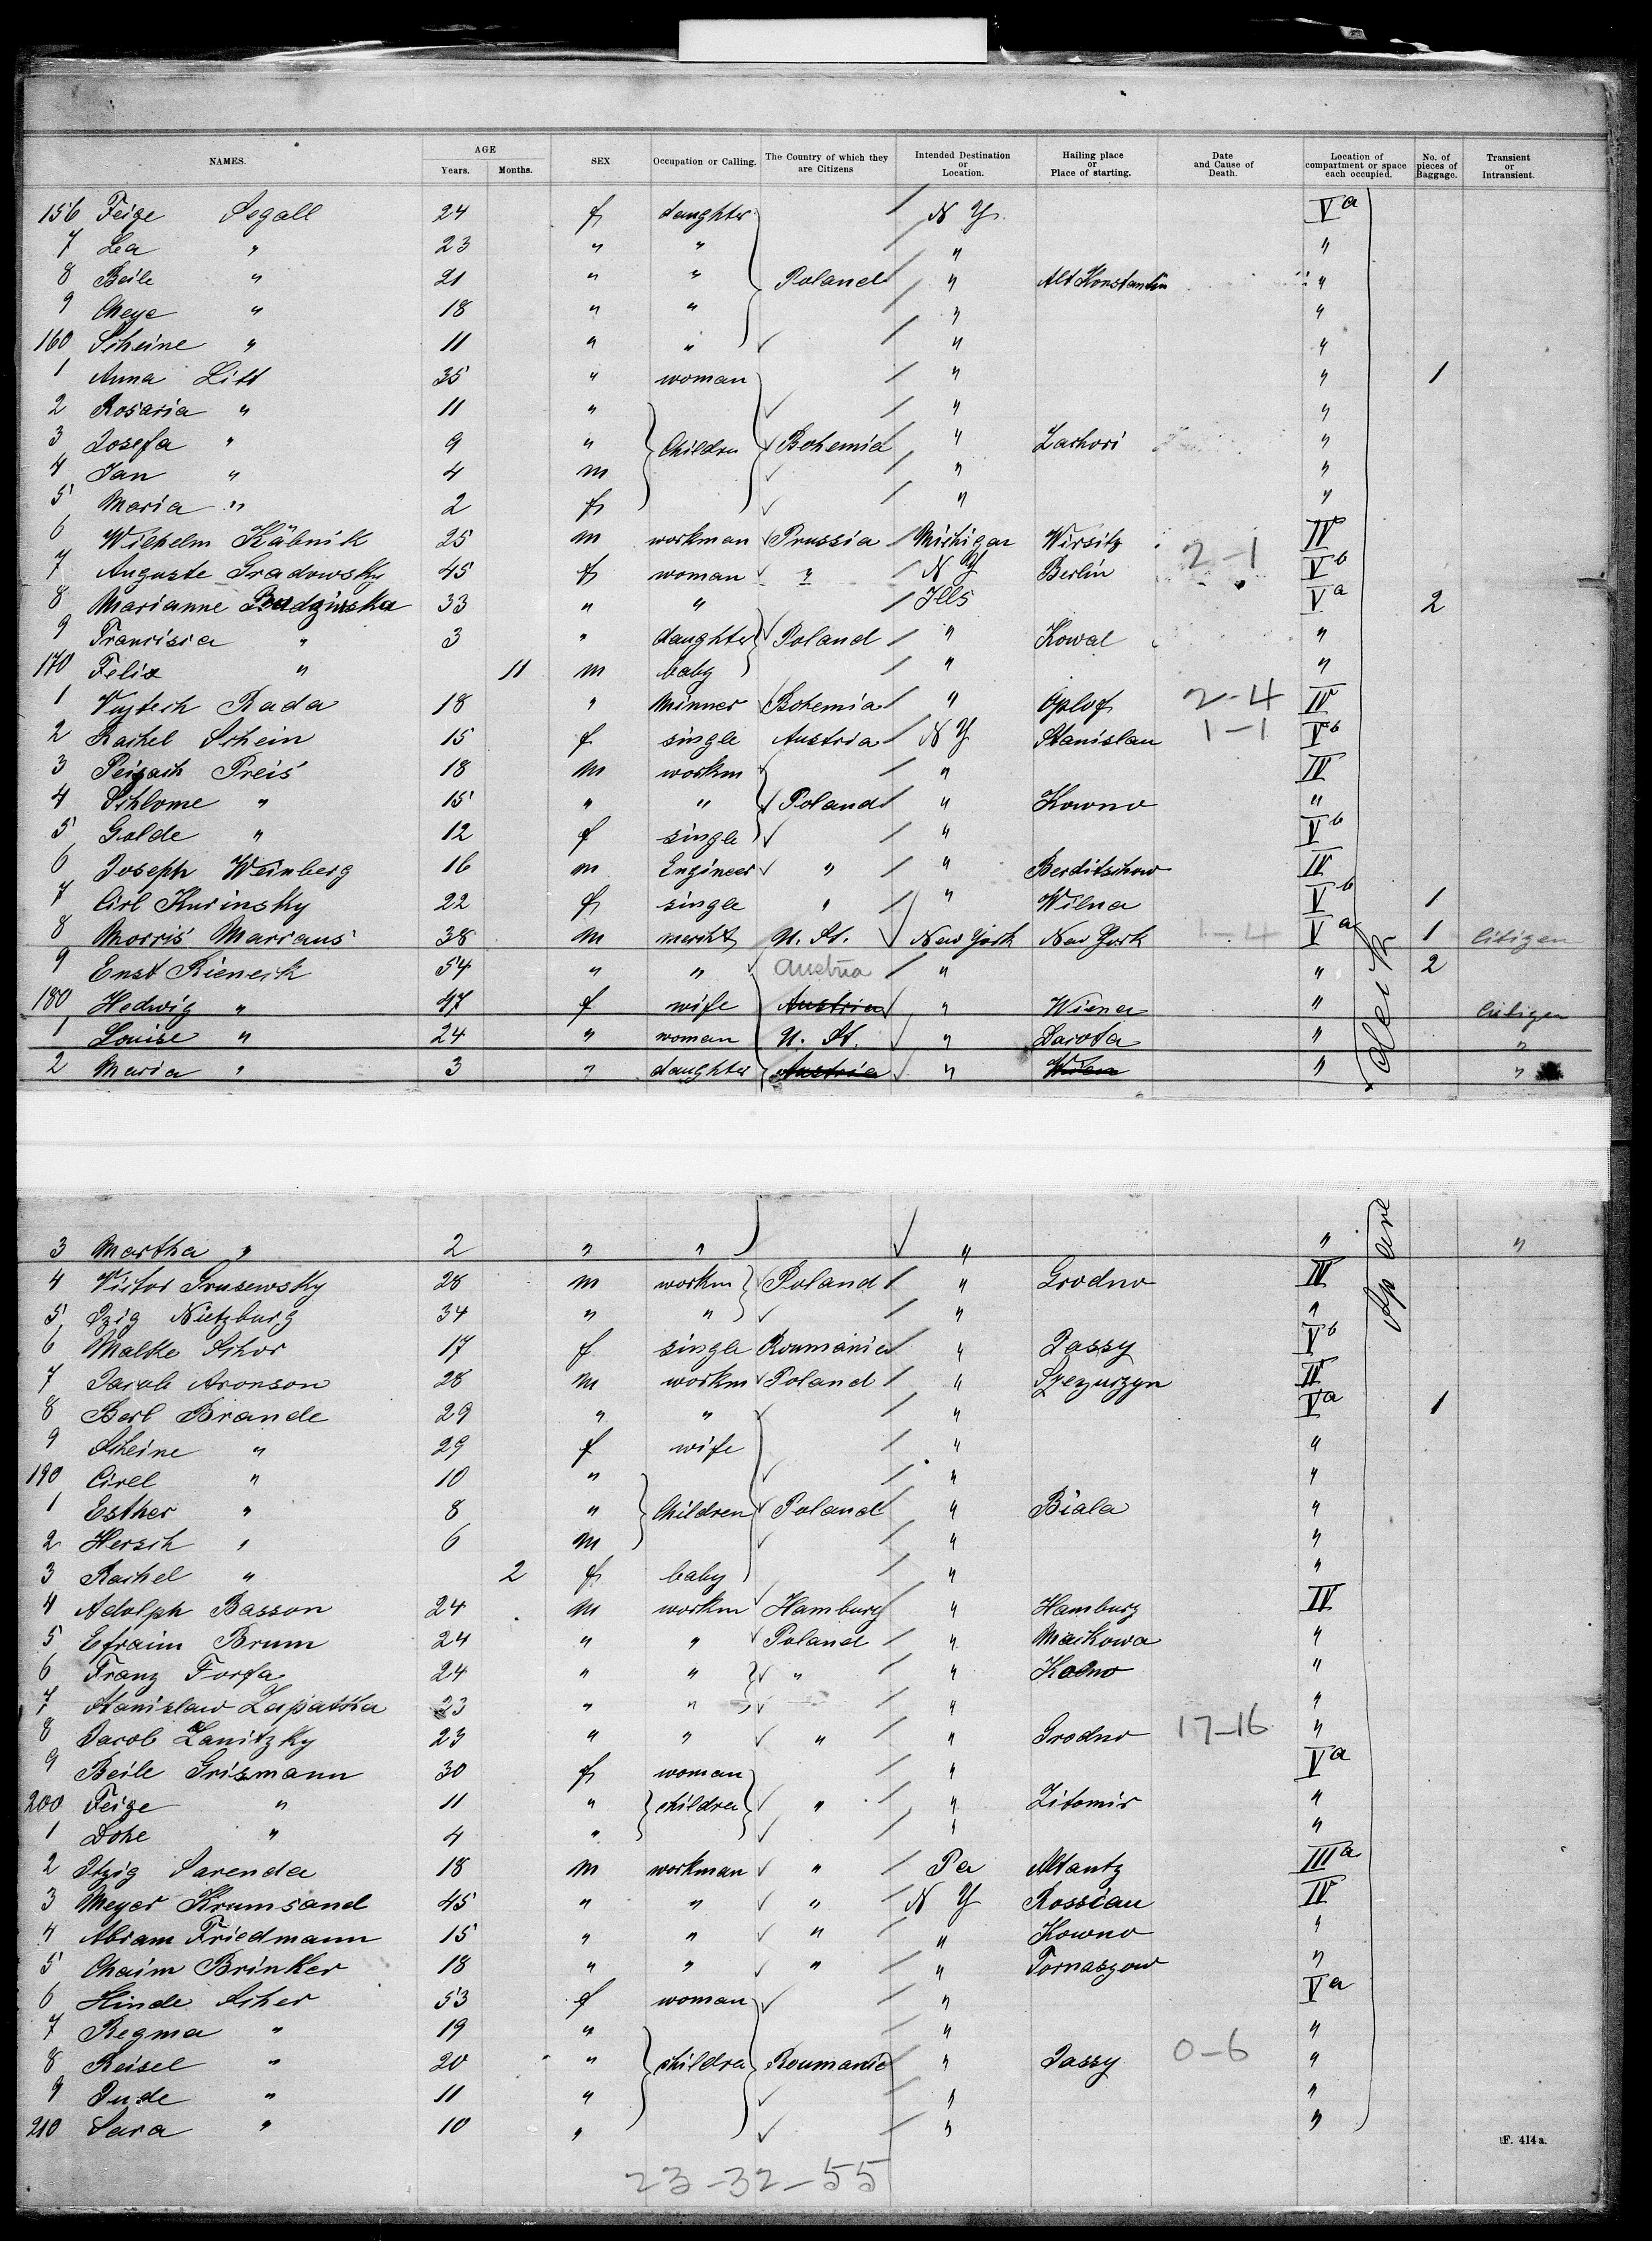 NAMES. AGE Years. Months. SEX Occupation or Calling. The Country of which they are Citizens Intended Destination or Location. Hailing place or Place of starting. Date and Cause of Death. Location of compartment or space each occupied. No. of pieces of Baggage. Transient or Intransient.
156 Feige Segall 24 f daughter N Y. Va
7 Lea " 23 " " " "
8 Beile " 21 " " Poland " Alt Konstantin "
9 Cheye " 18 " " " "
160 Scheine " 11 " " " "
1 Anna Litt 35 " woman " " 1
2 Rosaria " 11 " " "
3 Josefa " 9 " Children Bohemia " Zachori "
4 Jan " 4 m " "
5 Maria " 2 f " "
6 Wilhelm Käbnik 25 m workman Prussia Michigan Wirsitz IV
7 Auguste Gradowsky 45 f woman " N Y Berlin 2-1 Vb
8 Marianne Budzinska 33 " " Ills Va 2
9 Francisca " 3 " daughter Poland " Kowal "
170 Felix " 11 m baby " "
1 Vojtech Rada 18 " Minner Bohemia " 2-4 IV
2 Rachel Schein 15 f single Austria N Y Stanislau 1-1 Vb
3 Peisach Preis 18 m workm " IV
4 Schlome " 15 " " Poland " Kowno "
5 Golde " 12 f single " Vb
6 Joseph Weinberg 16 m Engineer " " Berditschow IV
7 Cirl Kurinsky 22 f single " " Wilna Vb 1
8 Morris Marcaus 38 m mercht U. St. New York New York 1-4 Va 1 citizen
9 Enst Rieneck 54 " " Austria " " 2
180 Hedwig " 47 f wife Austria " Wiena " citizen
1 Louise " 24 " woman U. St. " Dacota " "
2 Maria " 3 " daughter Austria " Wien " "
3 Martha " 2 " " " " "
4 Victor Grusewsky 28 m workm Poland " Grodno IV
5 Izig Nietzburg 34 " " " "
6 Malke Schor 17 f single Roumania " Jassy Vb
7 Jacob Aronson 28 m workm Poland " Szczuczyn IV
8 Berl Brande 29 " " " Va 1
9 Scheine " 29 f wife " "
190 Cirel " 10 " " "
1 Esther " 8 " Children Poland " Biala "
2 Hersch " 6 m " "
3 Rachel " 2 f baby " "
4 Adolph Basson 24 m workm Hamburg " Hamburg IV
5 Efraim Brum 24 " " Poland " Mackowa "
6 Franz Forfa 24 " " " " Kolno "
7 Stanislaw Lapatka 23 " " " "
8 Jacob Lanitzky 23 " " " " Grodno 17-16 "
9 Beile Grismann 30 f woman " Va
200 Feige " 11 " children " " Zitomir "
1 Dohe " 4 " " "
2 Itzig Sarenda 18 m workman " Pa IIIa
3 Meyer Krumsand 45 " " " N Y Rossian IV
4 Abram Friedmann 15 " " " " Kowno "
5 Chaim Brinker 18 " " " " Tomaszow "
6 Hinde Scher 53 f woman " Va
7 Regma " 19 " " "
8 Reisel " 20 " childre Roumania " Jassy 0-6 "
9 Jude " 11 " " "
210 Sara " 10 " " "
F. 414a.
23-32-55